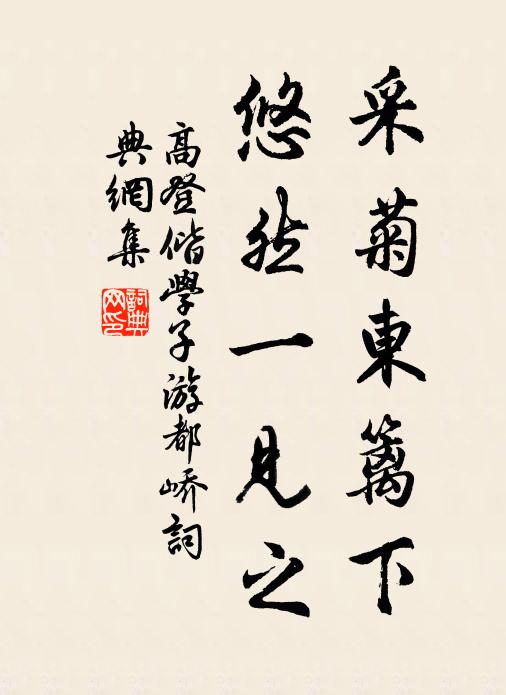 采菊東籬下
悠然一見之
高登偕學子游都嶠詞
典網集
詞典
网印